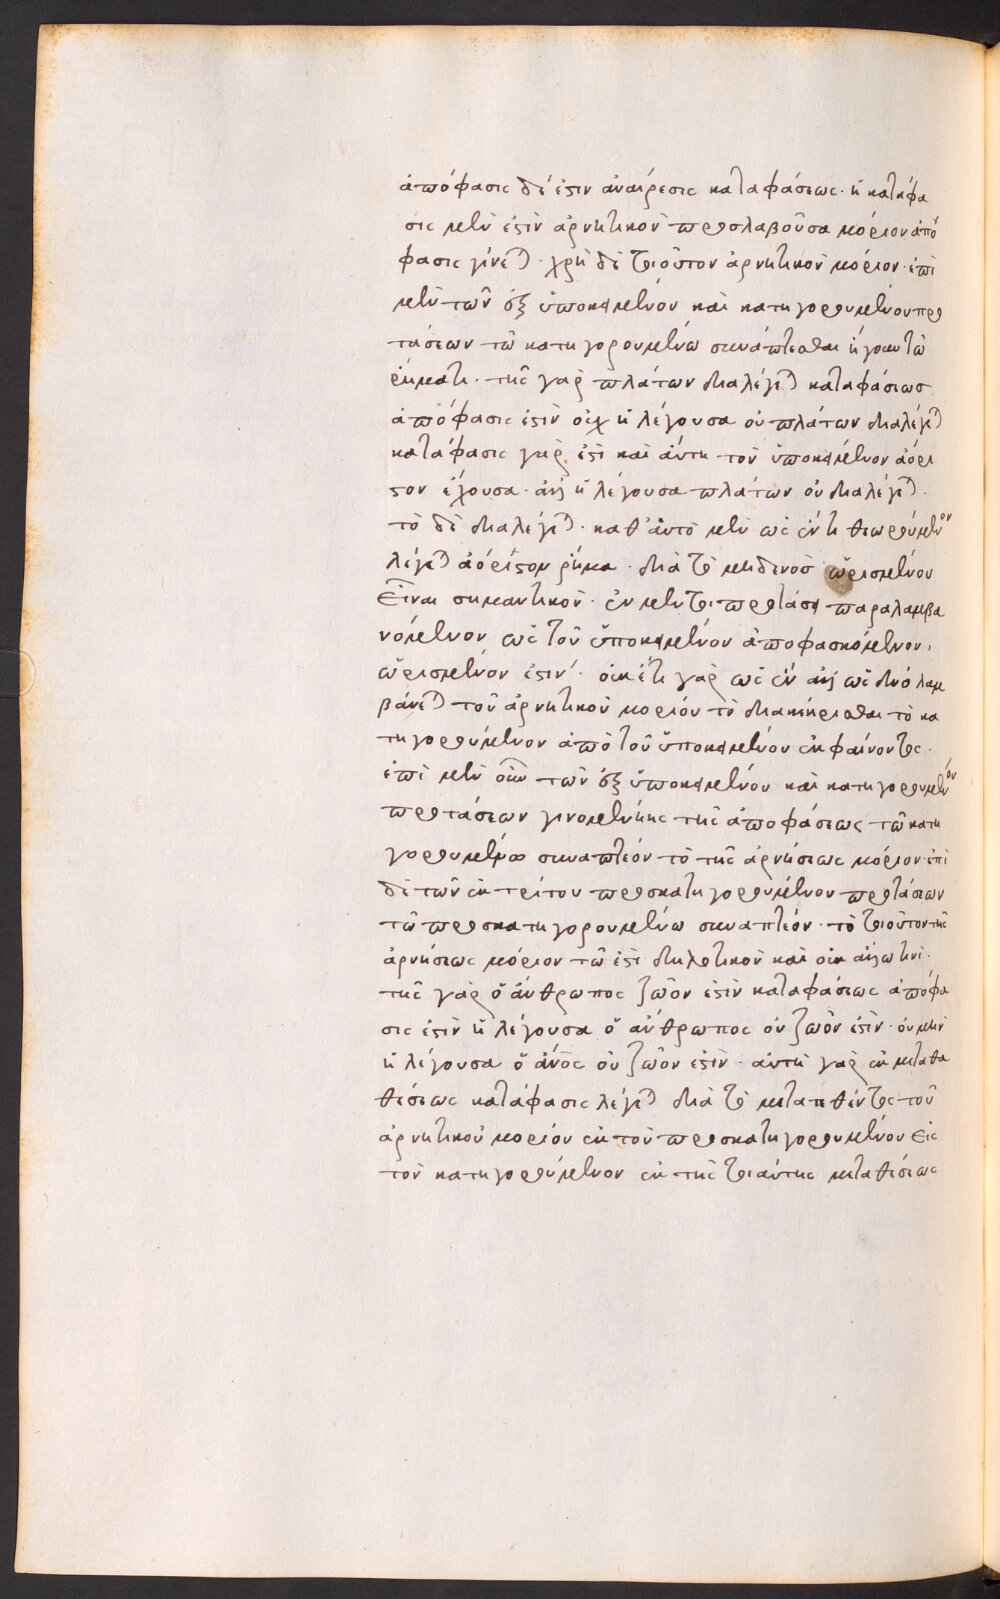 ἀπόφασις δέ ἐστιν ἀναίρεσις καταφάσεως· ἡ κατάφα
σις μὲν ἐστὶν ἀρνητικὸν προσλαβοῦσα μόριον ἀπό
φασις γίνεται· χρὴ δὲ τοιοῦτον ἀρνητικὸν μόριον· ἐπὶ
μὲν τῶν ἐξ ὑποκειμένου καὶ κατηγορουμένου προ
τάσεων τῶ κατηγορουμένω συνάπτεσθαι ἤγουν τῶ
ῥήματι· τῆς γὰρ πλάτων διαλέγεται καταφάσεως
ἀπόφασις ἐστὶν οὐχ ἡ λέγουσα οὐ πλάτων διαλέγεται
κατάφασις γάρ ἐστι καὶ αὐτη τὸν ὑποκείμενον ἀόρι
στον ἔχουσα· ἀλλ ἡ λέγουσα πλάτων οὐ διαλέγεται·
τὸ δὲ διαλέγεται· καθ' αὑτὸ μὲν ὡς ἕν τι θεωρούμενον
λέγεται ἀόριστον ῥήμα· διὰ τὸ μηδενὸσ ὡρισμένου
εἶναι σημαντικόν· ἐν μέν τοι προτάσει παραλαμβα
νόμενον ὡς τοῦ ὑποκειμένου ἀποφασκόμενον,
ὡρισμένον ἐστιν· οὐκ ἔτι γὰρ ὡς ἓν ἀλλ ὡς δύο λαμ
βάνεται τοῦ ἀρνητικοῦ μορίου τὸ διακεκρίσθαι τὸ κα
τηγορούμενον ἀπὸ τοῦ ὑποκειμένου ἐμφαίνοντος·
ἐπὶ μὲν οὖν τῶν ἐξ ὑποκειμένου καὶ κατηγορουμένου
προτάσεων γινομένης τῆς ἀποφάσεως τῶ κατη
γορουμένω συναπτέον τὸ τῆς ἀρνήσεως μόριον· ἐπὶ
δὲ τῶν ἐκ τρίτου προσκατηγορουμένου προτάσεων
τῶ προσκατηγορουμένω συναπτέον· τὸ τοιοῦτον τῆς
ἀρνήσεως μόριον τῶ ἐστὶ δηλοτικὸν καὶ οὐκ ἄλλω τινί·
τῆς γὰρ ὁ ἄνθρωπος ζῶον ἐστὶν καταφάσεως ἀπόφα
σις ἐστὶν ἡ λέγουσα ὁ ἄνθρωπος οὐ ζῶον ἐστὶν· οὐ μὴν
ἡ λέγουσα ὁ ἄνος οὐ ζῶον ἐστὶν· αὐτη γὰρ ἐκ μεταθα
θέσεως κατάφασις λέγεται διὰ τὸ μετατεθέντος τοῦ
ἀρνητικοῦ μορίου ἐκ τοῦ προσκατηγορουμένου εἰς
τὸν κατηγορούμενον ἐκ τῆς τοιαύτης μεταθέσεως